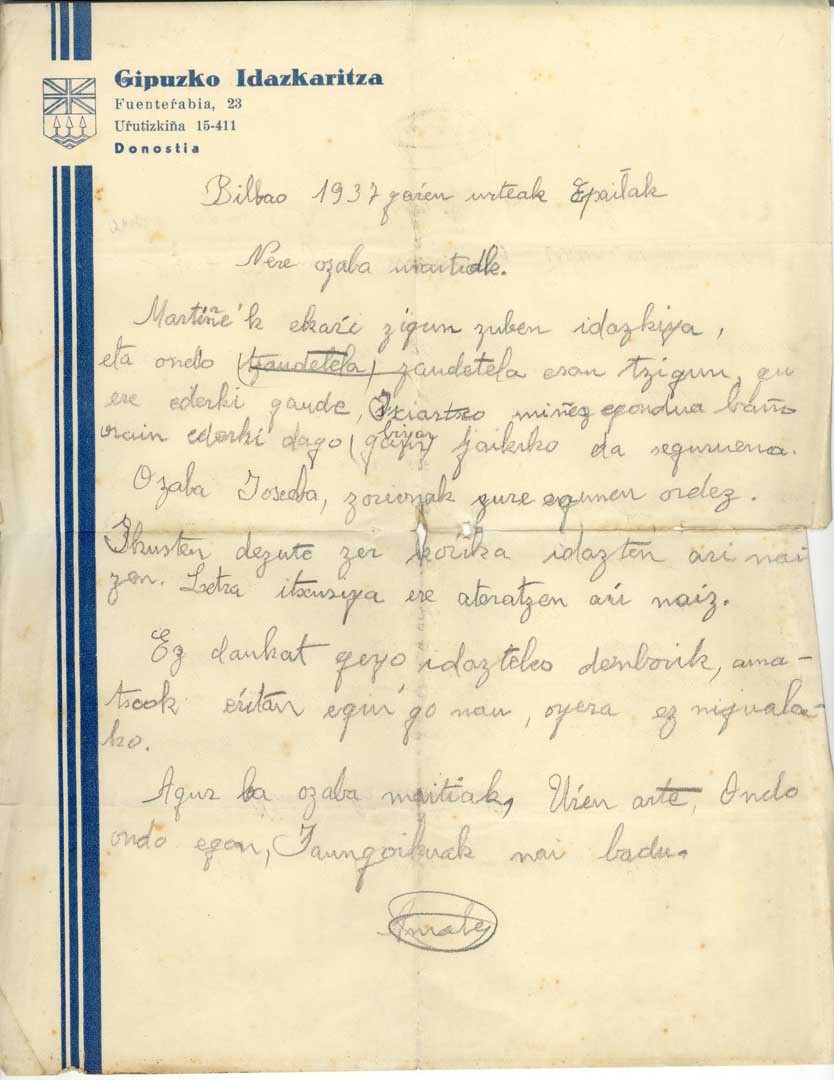 Gipuzko Idazkaritza
Fuenteŕabia, 23
Uŕutizkiña 15-411
Donostia
Bilbao 1937 gaŕen urteak Epaiĺak
Nere ozaba maitiak.
Martiñe'k ekaŕi zigun zuben idazkiya,
eta ondo (tzaudetela) zaudetela esan tzigun, gu
ere ederki gaude, Ixiartxo miñez egondua baño
orain ederki dago (biyar) jaikiko da seguruena.
Ozaba Joseba, zorionak zure egunen ordez.
Ikusten dezute zer idazten ari nai
zen. Letra itxusiya ere ateratzen aŕi naiz.
Ez daukat geyo idazteko denborik, ama-
txok eŕitan egin'go nau, oyera ez nijuala-
ko.
Agur ba ozaba maitiak, Uŕen arte, Ondo
ondo egon, Jaungoikuak nai badu.